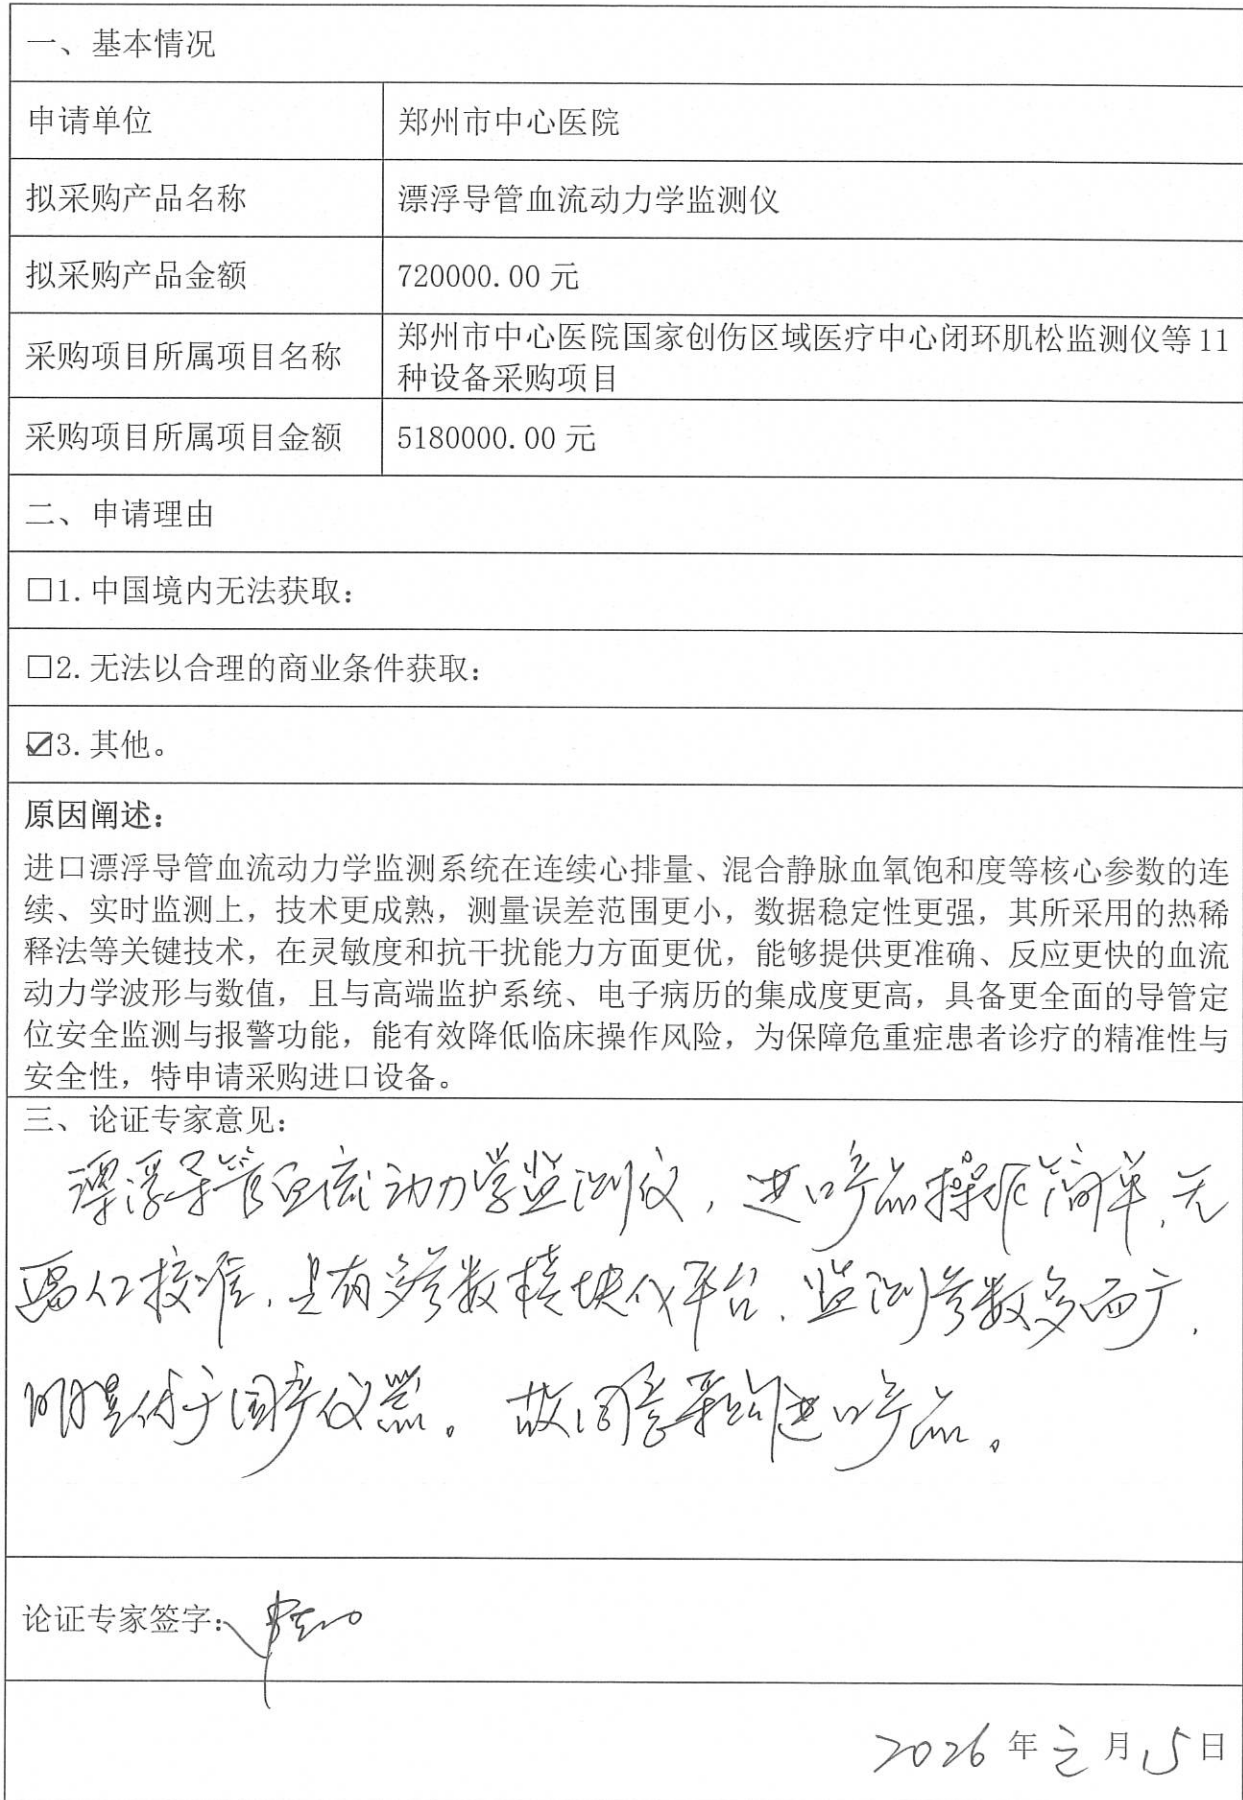 一、基本情况
申请单位
郑州市中心医院
拟采购产品名称
漂浮导管血流动力学监测仪
拟采购产品金额
720000.00 元
采购项目所属项目名称
郑州市中心医院国家创伤区域医疗中心闭环肌松监测仪等 11
种设备采购项目
采购项目所属项目金额
5180000.00 元
二、申请理由
□1.中国境内无法获取：
□2.无法以合理的商业条件获取：
☑3.其他。
原因阐述：
进口漂浮导管血流动力学监测系统在连续心排量、混合静脉血氧饱和度等核心参数的连
续、实时监测上，技术更成熟，测量误差范围更小，数据稳定性更强，其所采用的热稀
释法等关键技术，在灵敏度和抗干扰能力方面更优，能够提供更准确、反应更快的血流
动力学波形与数值，且与高端监护系统、电子病历的集成度更高，具备更全面的导管定
位安全监测与报警功能，能有效降低临床操作风险，为保障危重症患者诊疗的精准性与
安全性，特申请采购进口设备。
三、论证专家意见：
漂浮导管血流动力学监测仪，进口产品操作简单，无
需人工校准，具有多参数模块化平台，监测参数多而广，
明显优于国产仪器。故同意采购进口产品。
论证专家签字：
2026 年 月 15 日